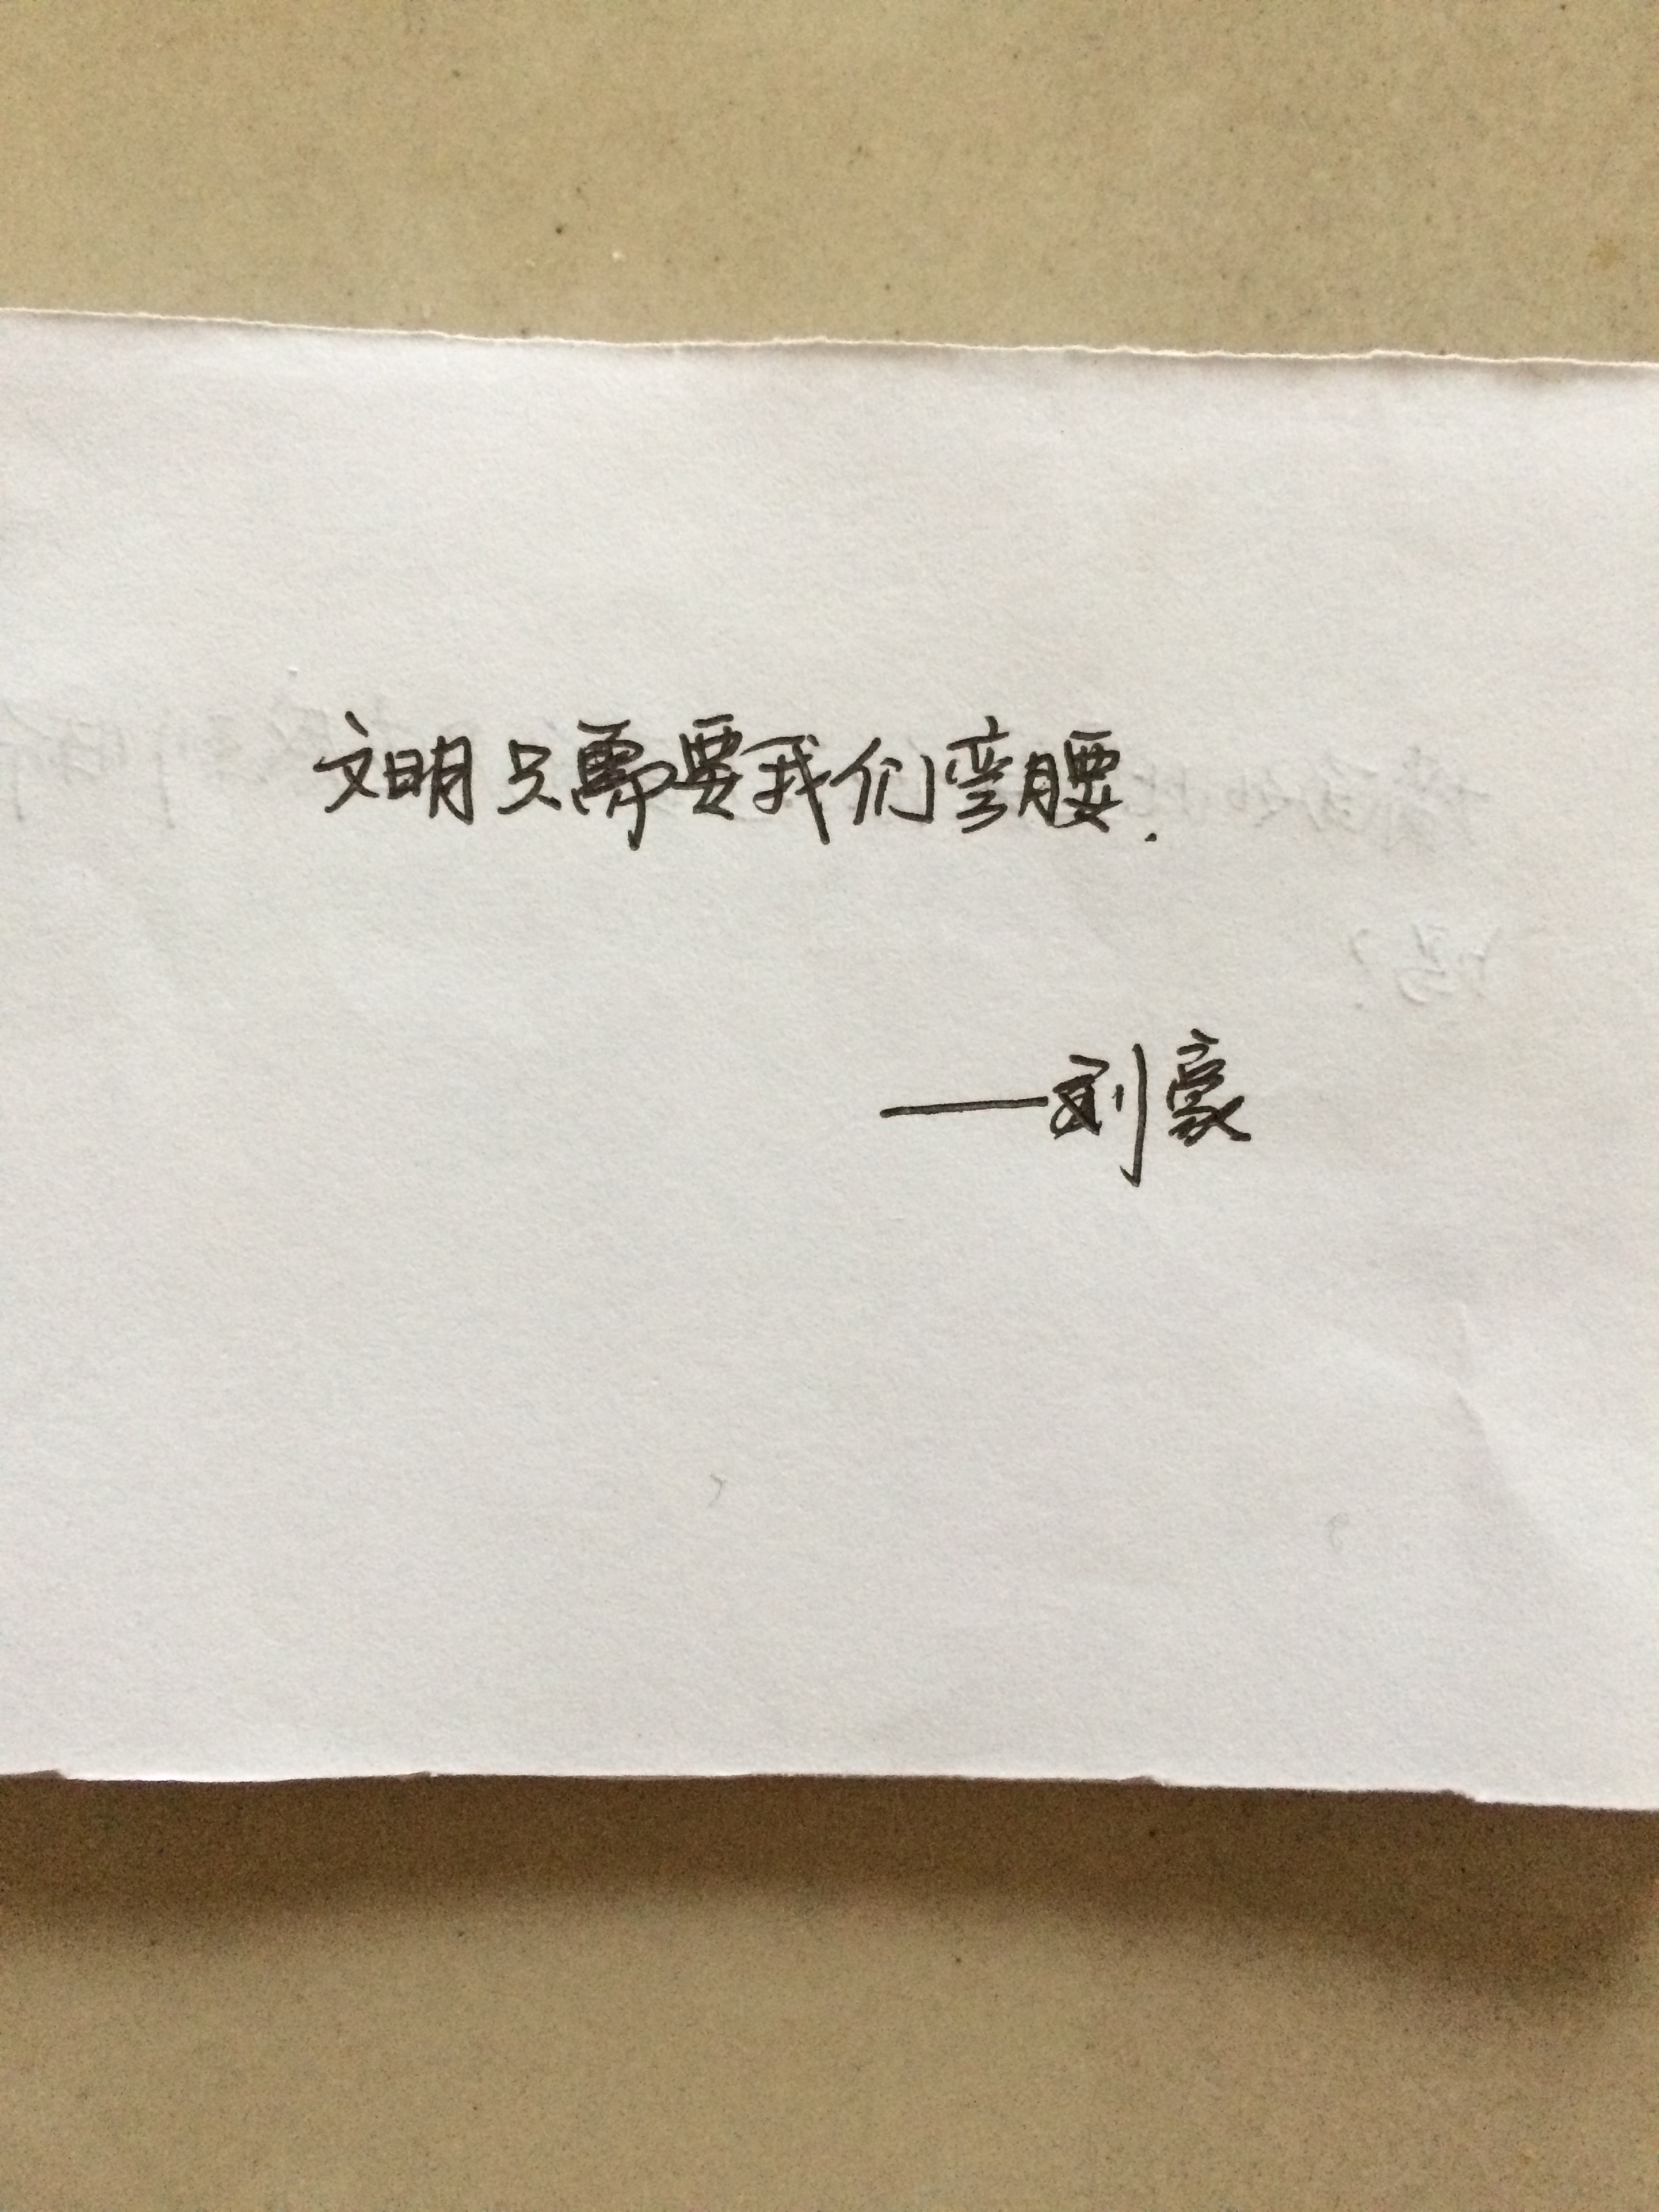 文明只需要我们弯腰.
——刘豪